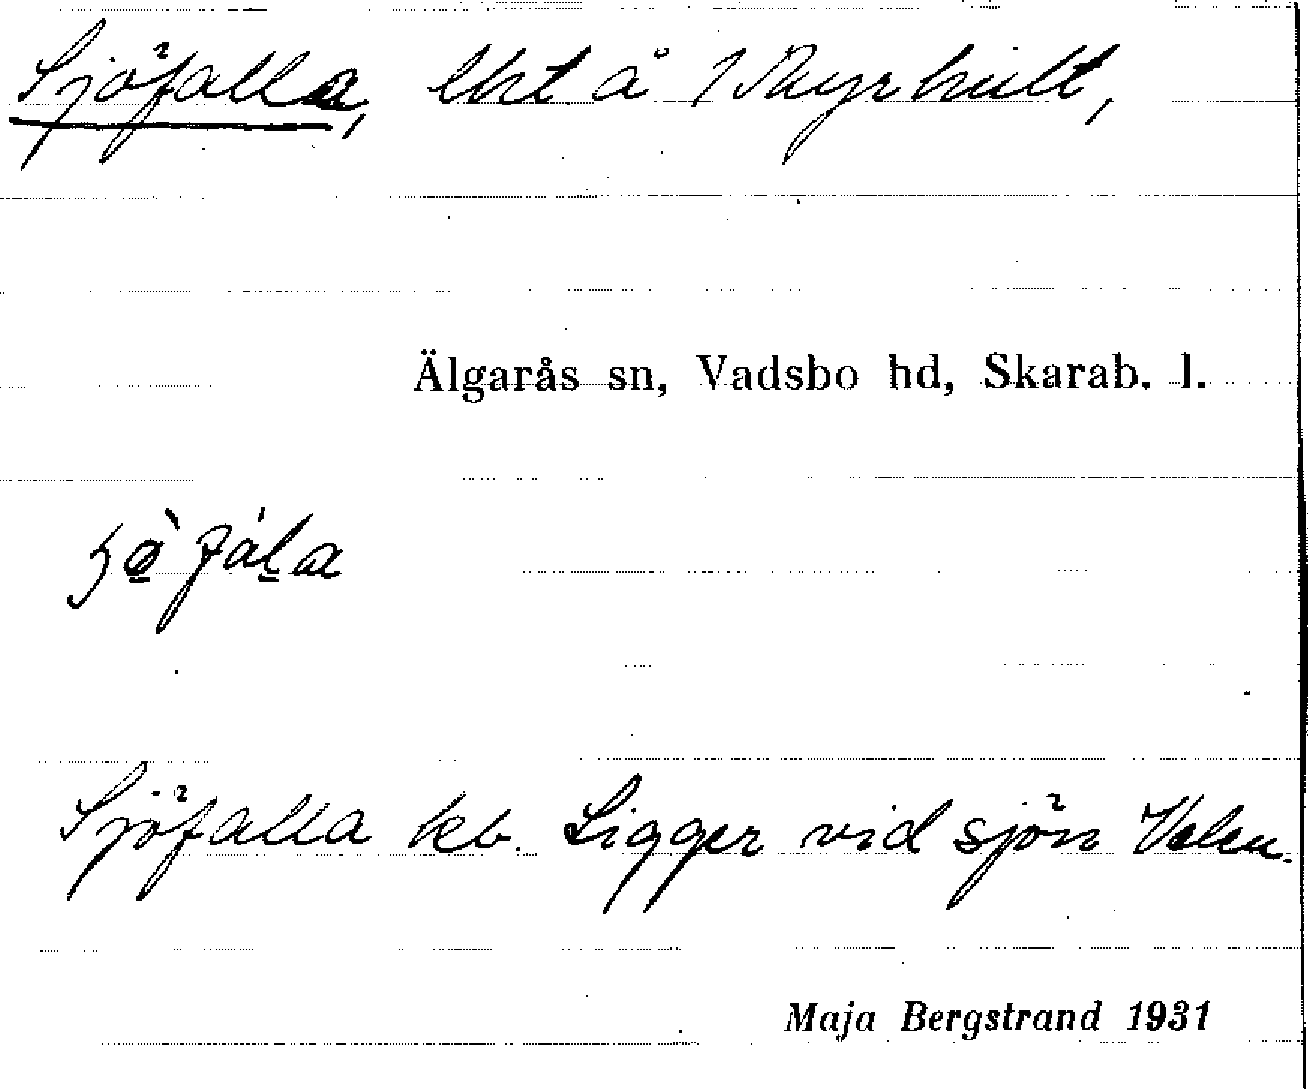 Sjöfalla, lht å 1 Myrhult,
Älgarås sn, Vadsbo hd, Skarab. l.
Sjöfalla kb. Ligger vid sjön
Maja Bergstrand 1931